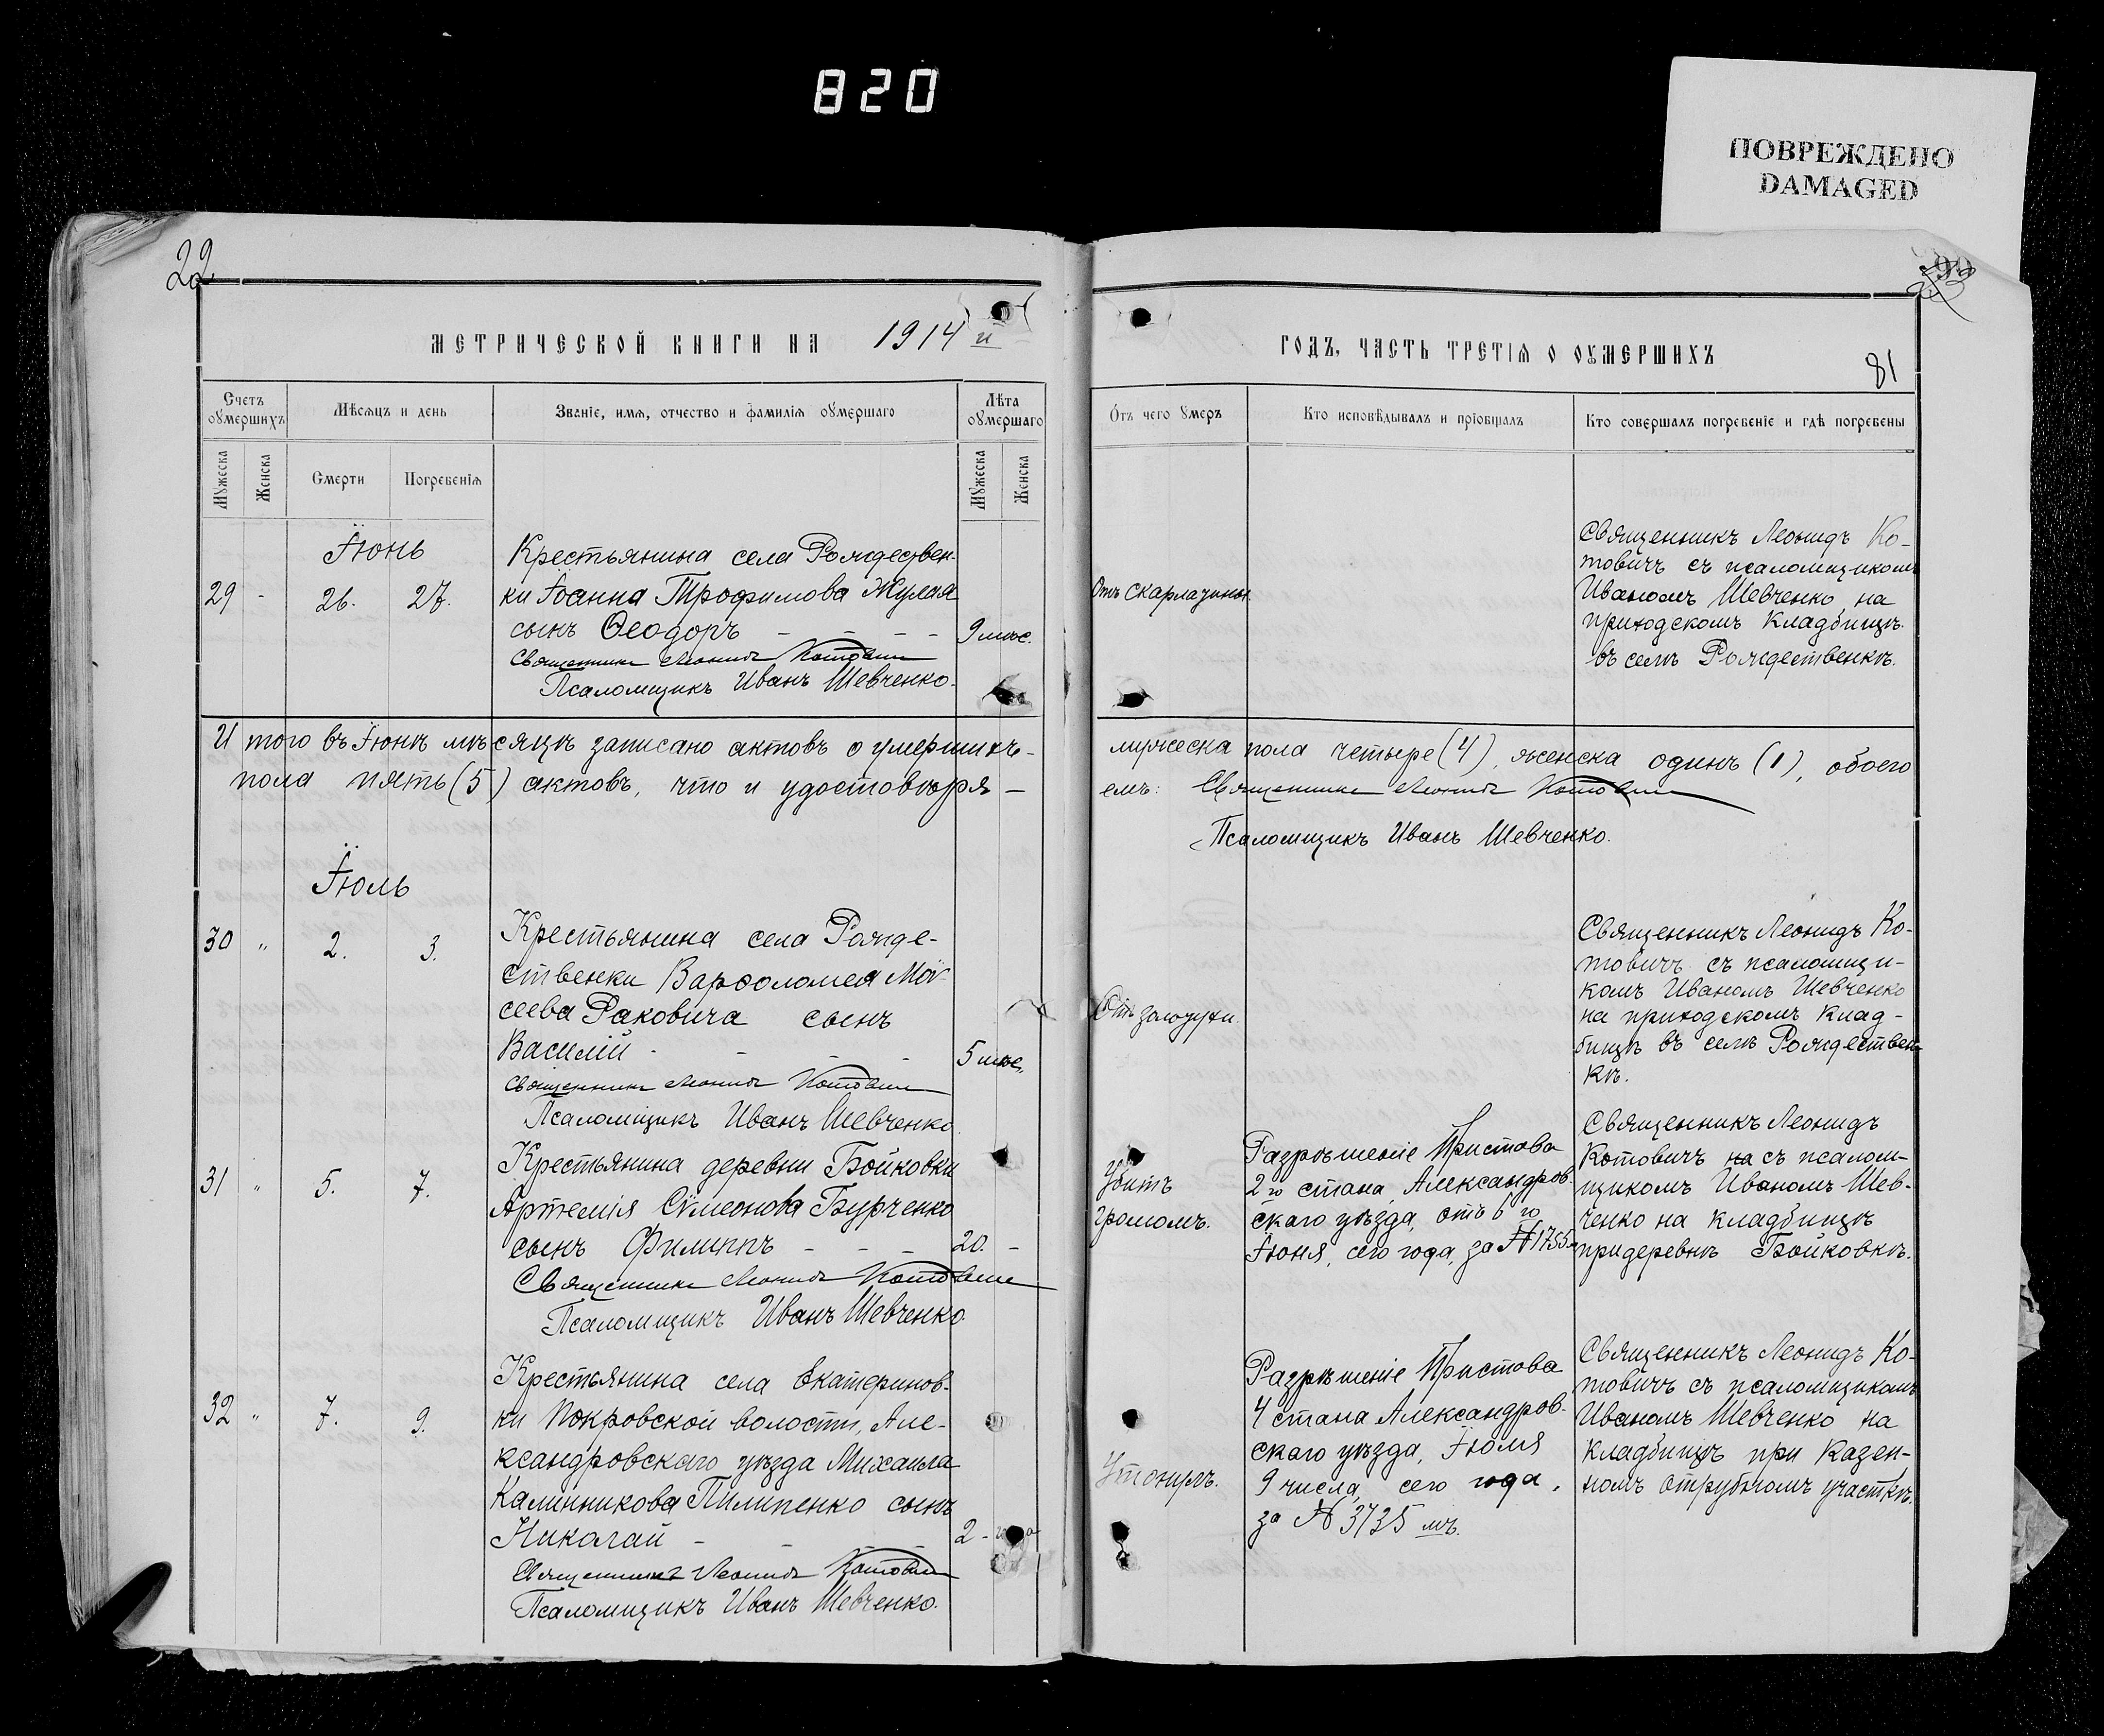 820
ПОВРЕЖДЕНО
DAMAGED
22.
МЕТРИЧЕСКОЙ КНИГИ НА 1914 й
ГОДЪ, ЧАСТЬ ТРЕТІЯ О ОУМЕРШИХЪ
81
Счетъ оумершихъ
Мѣсяцъ и день
Званіе, имя, отчество и фамилія оумершаго
Лѣта оумершаго
Отъ чего умеръ
Кто исповѣдывалъ и пріобщалъ
Кто совершалъ погребеніе и гдѣ погребены
Мужеска
Женска
Смерти
Погребенія
Мужеска
Женска
Іюнь
29 - 26. 27.
Крестьянина села Рождествен-
ки Іоанна Трофимова Жулая
сынъ Ѳеодоръ - - - - 9 мѣс.
Священникъ Леонидъ Котовичъ
Псаломщикъ Иванъ Шевченко.
Отъ скарлатины
Священникъ Леонидъ Ко-
товичъ съ псаломщикомъ
Иваномъ Шевченко, на
приходскомъ кладбищѣ
въ селѣ Рождественкѣ.
Итого въ Іюнѣ мѣсяцѣ записано актовъ о умершихъ-
мужеска пола четыре (4), женска одинъ (1), обоего
пола пять (5) актовъ, что и удостовѣря-
емъ: Священникъ Леонидъ Котовичъ
Псаломщикъ Иванъ Шевченко.
Іюль
30 " 2. 3.
Крестьянина села Рожде-
ственки Варѳоломея Мои-
сеева Раковича сынъ
Василій - - - - 5 мѣс.
Священникъ Леонидъ Котовичъ
Псаломщикъ Иванъ Шевченко.
Отъ золотухи.
Священникъ Леонидъ Ко-
товичъ съ псаломщи-
комъ Иваномъ Шевченко
на приходскомъ клад-
бищѣ въ селѣ Рождествен-
кѣ.
31 " 5. 7.
Крестьянина деревни Бойковки
Артемія Сѵмеонова Бурченко
сынъ Филиппъ - - - 20. -
Священникъ Леонидъ Котовичъ
Псаломщикъ Иванъ Шевченко.
Убитъ
громомъ.
Разрѣшеніе Пристава
2го стана, Александров-
скаго уѣзда, отъ 6го
Іюня, сего года, за № 1755.
Священникъ Леонидъ
Котовичъ на съ псалом-
щикомъ Иваномъ Шев-
ченко на кладбищѣ
при деревнѣ Бойковкѣ.
32 " 7. 9.
Крестьянина села Екатеринов-
ки Покровской волости, Але-
ксандровскаго уѣзда Михаила
Калинникова Пилипенко сынъ
Николай - - - - 2 -
Священникъ Леонидъ Котовичъ
Псаломщикъ Иванъ Шевченко.
Утонулъ.
Разрѣшеніе Пристава
4 стана Александров-
скаго уѣзда, Іюля
9 числа, сего года,
за № 3735 мъ.
Священникъ Леонидъ Ко-
товичъ съ псаломщикомъ
Иваномъ Шевченко на
кладбищѣ при казен-
номъ отрубномъ участкѣ.